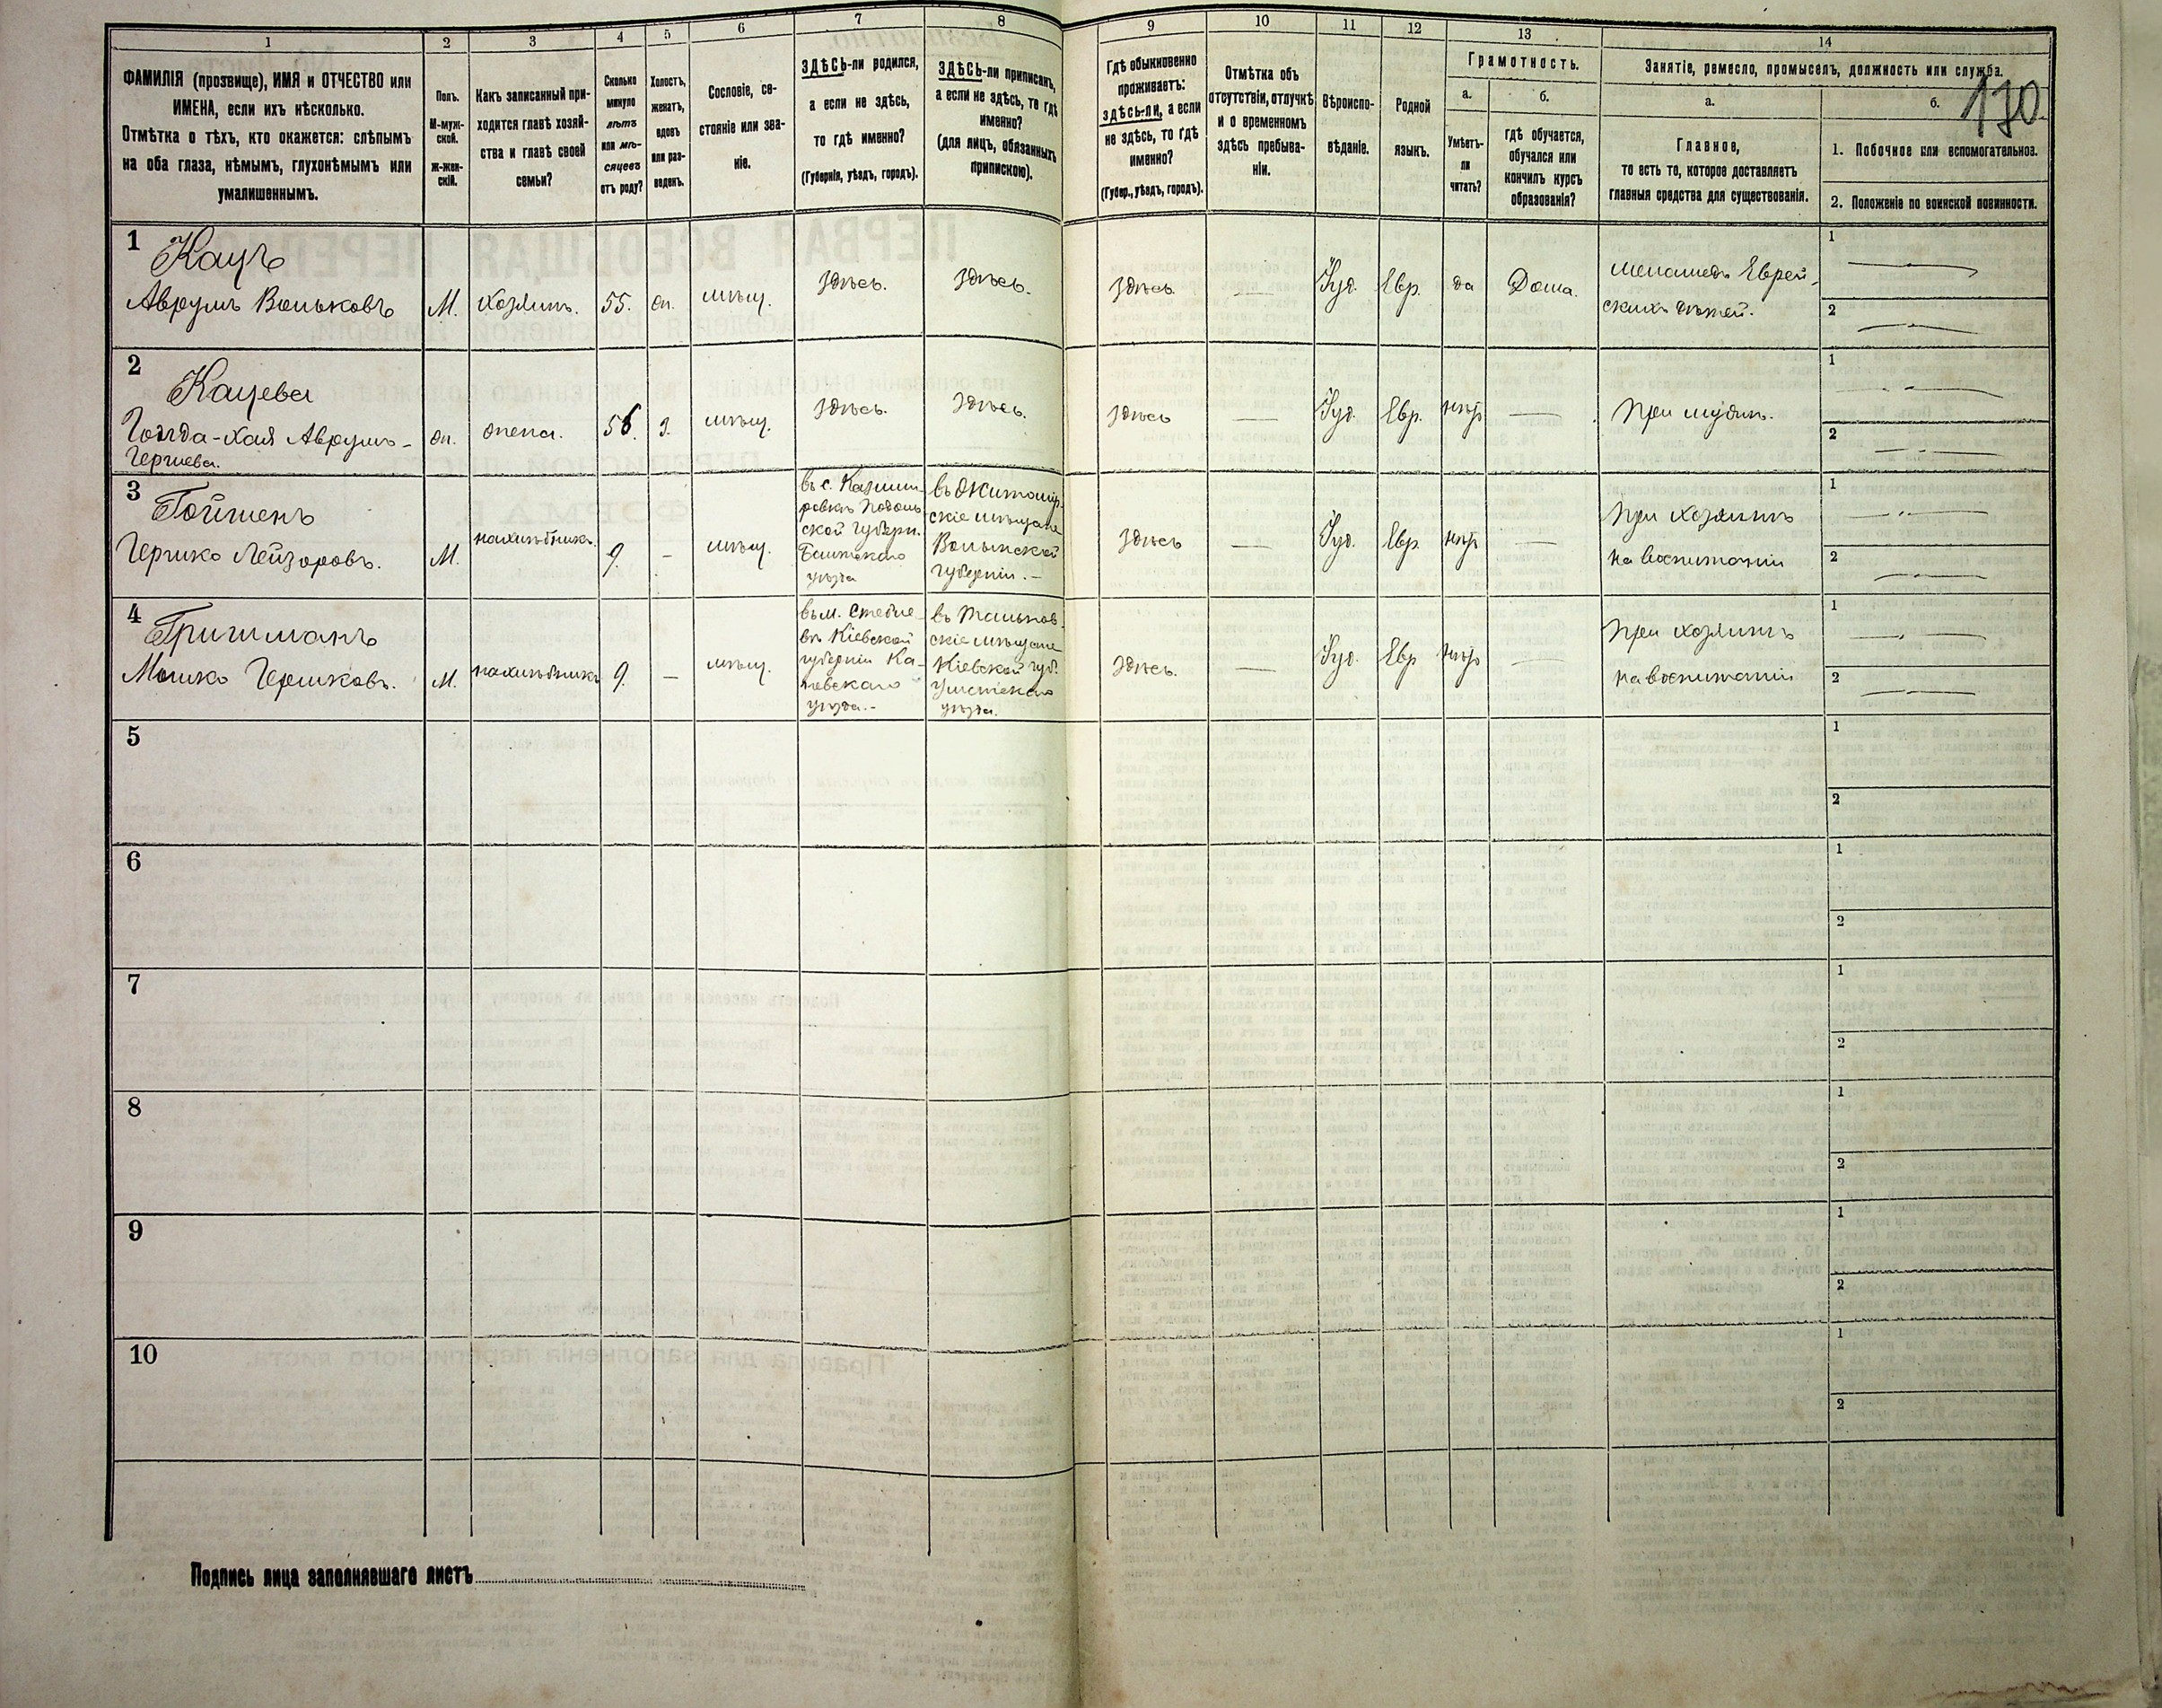 1
2
3
4
5
6
7
8
9
10
11
12
13
14
ФАМИЛІЯ (прозвище), ИМЯ и ОТЧЕСТВО или
ИМЕНА, если ихъ нѣсколько.
Отмѣтка о тѣхъ, кто окажется: слѣпымъ
на оба глаза, нѣмымъ, глухонѣмымъ или
умалишеннымъ.
Полъ.
М-муж-
ской.
Ж-жен-
скій.
Какъ записанный при-
ходится главѣ хозяй-
ства и главѣ своей
семьи?
Сколько
минуло
лѣтъ
или мѣ-
сяцевъ
отъ роду?
Холостъ,
женатъ,
вдовъ
или раз-
веденъ.
Сословіе, со-
стояніе или зва-
ніе.
ЗДѢСЬ-ли родился,
а если не здѣсь,
то гдѣ именно?
(Губернія, уѣздъ, городъ).
ЗДѢСЬ-ли приписанъ,
а если не здѣсь, то гдѣ
именно?
(для лицъ, обязанныхъ
припискою).
Гдѣ обыкновенно
проживаетъ:
ЗДѢСЬ-ЛИ, а если
не здѣсь, то гдѣ
именно?
(Губер., уѣздъ, городъ).
Отмѣтка объ
отсутствіи, отлучкѣ
и о временномъ
здѣсь пребыва-
ніи.
Вѣроиспо-
вѣданіе.
Родной
языкъ.
Грамотность.
а.
б.
Умѣетъ-
ли
читать?
Гдѣ обучается,
обучался или
кончилъ курсъ
образованія?
Занятіе, ремесло, промыселъ, должность или служба.
а.
б.
130.
Главное,
то есть то, которое доставляетъ
главныя средства для существованія.
1. Побочное или вспомогательное.
2. Положеніе по воинской повинности.
1
Кацъ
Аврумъ Вольковъ
М.
хозяинъ.
55.
ж.
мѣщ.
здѣсь.
здѣсь.
здѣсь.
Іуд.
Евр.
да
Дома.
меламедъ Еврей-
скихъ дѣтей.
1
2
2
Кацева
Гольда-Хая Аврумъ-
Гершева.
ж.
жена.
56.
з.
мѣщ.
здѣсь.
здѣсь.
здѣсь
Іуд.
Евр.
нѣтъ
при мужѣ.
1
2
3
Гойтенъ
Гершко Лейзоровъ.
М.
нахлѣбникъ.
9.
-
мѣщ.
въ с. Казими-
ровкѣ Подоль-
ской Губерн.
уѣзда
въ Житомір-
скіе мѣщане
Волынской
губерніи.-
здѣсь
Іуд.
Евр.
нѣтъ
при хозяинѣ
на воспитаніи
1
2
4
Гришманъ
Мошко Гершковъ.
М.
нахлѣбникъ
9.
-
мѣщ.
въ м. Степне-
вѣ Кіевской
губерніи Ка-
невскаго
уѣзда.-
въ Тальнов-
скіе мѣщане
Кіевской губ.
Уманскаго
уѣзда.
здѣсь.
Іуд.
Евр
нѣтъ
при хозяинѣ
на воспитаніи
1
2
5
1
2
6
1
2
7
1
2
8
1
2
9
1
2
10
1
2
Подпись лица заполнявшаго листъ